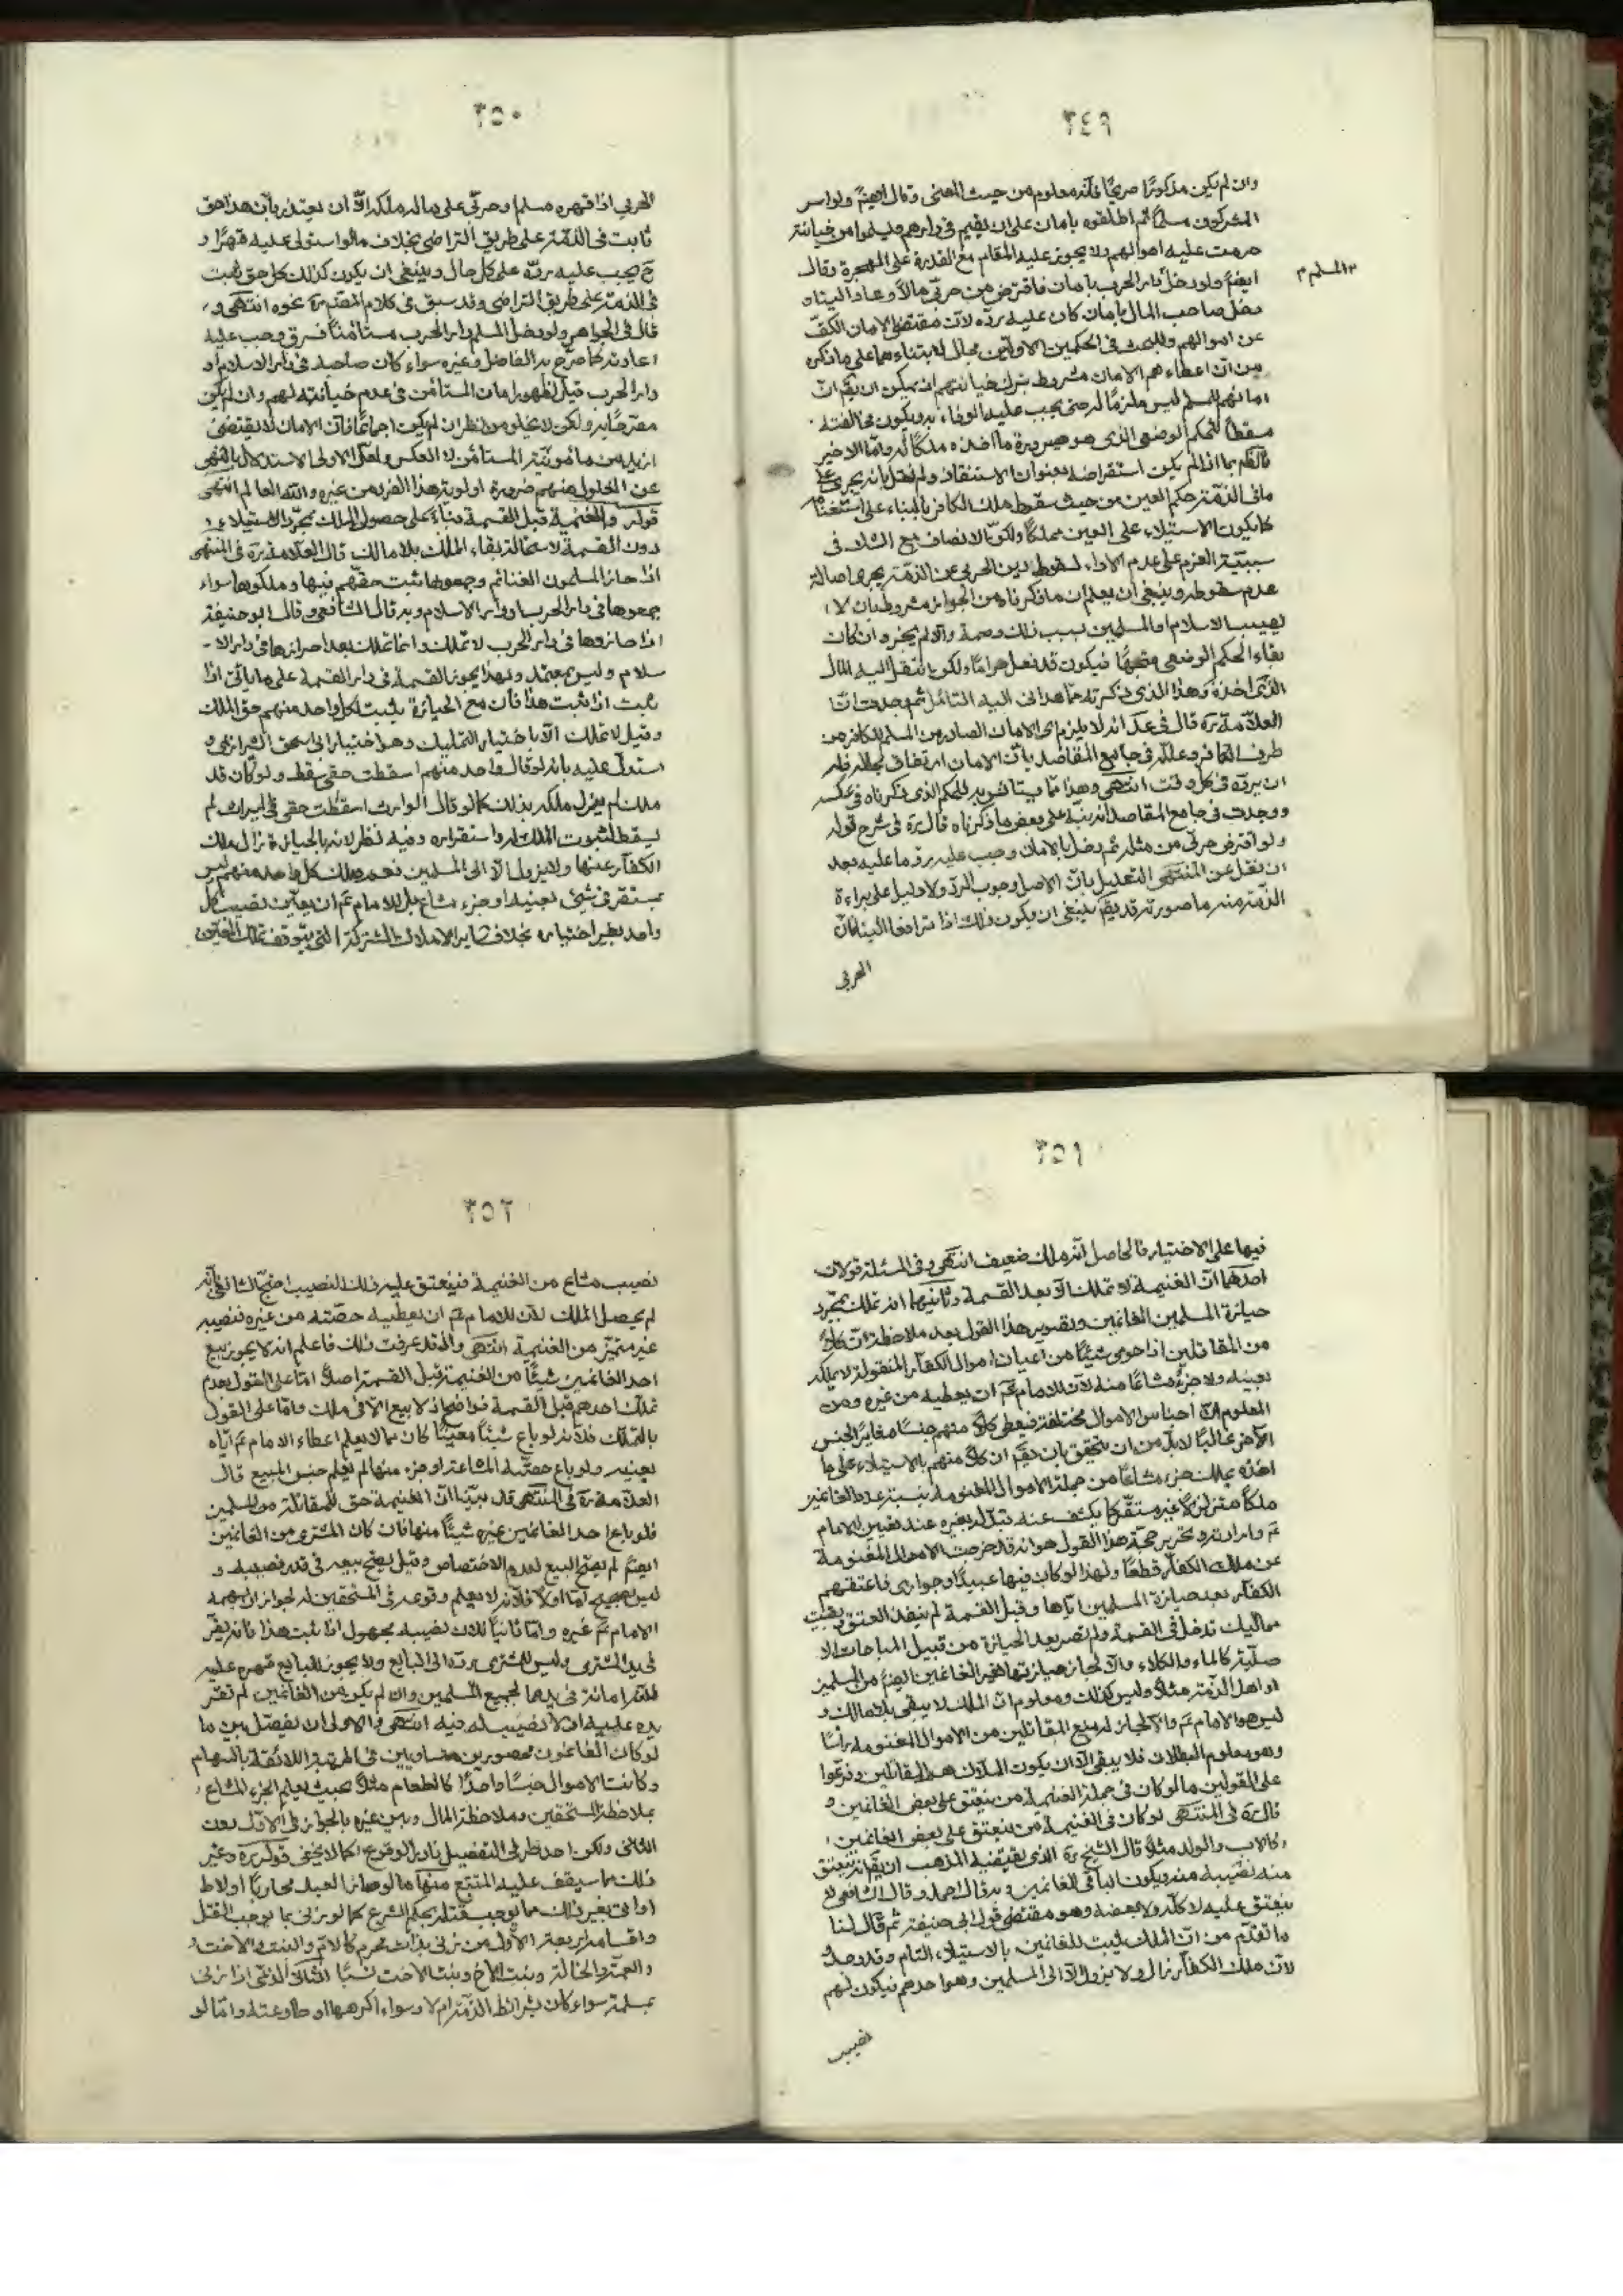 ٣٤٩
وان لم يكن مذكورًا صريحًا فانه معلوم من حيث المعنى وقال ايضًا ولو اسر
المشركون مسلمًا ثم اطلقوه بامان على ان يقيم في دارهم ويسلموا من خيانته
حرمت عليه اموالهم ولا يجوز عليه المقام مع القدرة على الهجرة وقال
ايضًا ولو دخل دار الحرب بامان فاقترض من حربي مالًا وعاد الينا و
دخل صاحب المال بامان كان عليه ردّه لان مقتضى الامان الكفّ
عن اموالهم وللبحث في الحكمين الاولين مجال لابتنائهما على ما ذكره
من ان اعطاءهم الامان مشروط بترك خيانتهم اذ يمكن ان يقم ان
امانهم للمسلم ليس ملزمًا له حتى يجب عليه الوفاء به ويكون مخالفته
مسقطًا للحكم الوضعي الذي هو صيرورة ما اخذه ملكًا له وامّا الاخير
المسلم
فالحكم بما اذا لم يكن استقراضه بعنوان الاستنقاذ ولم نقل بانه يجري على
ما في الذمّة حكم العين من حيث سقوط ملك الكافر بالبناء على استغنامه
كما يكون الاستيلاء على العين مملكًا ولكن الانصاف مع الشك في
سببيّة العزم على عدم الاداء لسقوط دين الحربي عن الذمّة يجري اصالة
عدم سقوطه وينبغي ان يعلم ان ما ذكرناه من الجواز مشروط بان لا
يصيب الاسلام او المسلمين بسبب ذلك وصمة والا لم يجز وان كان
بقاء الحكم الوضعي متجهًا فيكون قد فعل حرامًا ولكن انتقل اليه المال
الذي اخذه وهذا الذي ذكرته مما هداني اليه التامّل ثم وجدت انّ
العلّامة ره قال في عد انه لا يلزم اى الامان الصادر من المسلم للكافر من
طرف الكافر وعلّله في جامع المقاصد بان الامان ارتفاق لجلاله فله
ان يردّه في كل وقت انتهى وهذا مما يستانس به للحكم الذي ذكرناه في عكسه
ووجدت في جامع المقاصد انه نبّه على بعض ما ذكرناه قال ره في شرح قوله
ولو اقترض حربي من مثله ثم دخل بالامان وجب عليه ردّ ما عليه بعد
ان نقل عن المنتهى التعليل بان الاصل وجوب الردّ ولا دليل على براءة
الذمّة منه ما صورته قد يقم ينبغي ان يكون ذلك اذا ترافعا الينا لان
الحربي
٣٥٠
الحربي اذا قهره مسلم او حربي على ماله ملكه الّا ان يعتذر بان هذا حق
ثابت في الذمّة على طريق التراضي بخلاف ما لو استولى عليه قهرًا و
ح يجب عليه ردّه على كل حال وينبغي ان يكون كذلك كل حق يثبت
في الذمّة على طريق التراضي وقد سبق في كلام المصنّف ره نحوه انتهى و
قال في الجواهر ولو دخل المسلم دار الحرب مستامنًا فسرق وجب عليه
اعادته كما صرّح به الفاضل وغيره سواء كان صاحبه في دار الاسلام او
دار الحرب قيل لظهور امان المستامن في عدم خيانته لهم وان لم يكن
مصرّحًا به ولكن لا يخلو من نظر ان لم يكن اجماعًا فان الامان لا يقتضي
ازيد من مامونيّة المستامن لا العكس ولعلّ الاولى الاستدلال بالنهى
عن الغلول منهم ضرورة اولويّة هذا الفرد من غيره والله العالم انتهى
قوله والغنيمة قبل القسمة بناءً على حصول الملك بمجرّد الاستيلاء
دون القسمة لاستحالة بقاء الملك بلا مالك قال العلّامة ره في المنتهى
اذا حاز المسلمون الغنائم وجمعوها ثبت حقّهم فيها وملكوها سواء
جمعوها في دار الحرب او دار الاسلام وبه قال الشافعي وقال ابو حنيفة
اذا حازوها في دار الحرب لا تملك وانما تملك بعد احرازها في دار الا
سلام وليس بمعتمد ولهذا يجوز القسمة في دار القسمة على ما ياتي اذا
ثبت اذا ثبت هذا فان مع الحيازة يثبت لكل واحد منهم حق الملك
وقيل لا تملك الّا باختيار التمليك وهو اختيار ابى اسحق الشيرازي و
استدلّ عليه بانه لو قال واحد منهم اسقطت حقي سقط ولو كان قد
ملك لم يزل ملكه بذلك كما لو قال الوارث اسقطت حقي في الميراث لم
يسقط لثبوت الملك له واستقراره وفيه نظر لانه بالحيازة زال ملك
الكفار عنها ولا يزول الّا الى المسلمين نعم ملك كل واحد منهم ليس
بمستقر في شيء بعينه او جزء مشاع بل للامام عم ان يعيّن نصيب كل
واحد بغير اختياره بخلاف ساير الاملاك المشتركة التي يتوقف تملك المعيّن
٣٥١
فيها على الاختيار فالحاصل انه ملك ضعيف انتهى وفي المسئلة قولان
احدهما انّ الغنيمة لا تملك الّا بعد القسمة وثانيهما انه تملك بمجرّد
حيازة المسلمين الغانمين وتصوير هذا القول بعد ملاحظة انّ كلًّا
من المقاتلين اذا حوى شيئًا من اعيان اموال الكفار المنقولة لا يملكه
بعينه ولا جزءً مشاعًا منه لان للامام عم ان يعطيه من غيره ومن
المعلوم ان اجناس الاموال مختلفة فيعطى كلّ منهم جنسًا مغاير الجنس
الآخر غالبًا لا بدّ من ان يتحقق بان يقم ان كلّا منهم بالاستيلاء على ما
اخذه يملك جزءً مشاعًا من جملة الاموال المغنومة بنسبة عدد الغانمين
ملكًا متزلزلًا غير مستقرّ كما يكشف عنه تبدّله بغيره عند تعيين الامام
عم وارادته وتحرير حجّة هذا القول هو انه قد خرجت الاموال المغنومة
عن ملك الكفار قطعًا ولهذا لو كان فيها عبيدًا وجواري فاعتقهم
الكفار بعد حيازة المسلمين ايّاها وقبل القسمة لم ينفذ العتق وبقيت
مماليك تدخل في القسمة ولم تصر بعد الحيازة من قبيل المباحات الا
صليّة كالماء والكلاء والّا لجاز حيازتها لغير الغانمين ايضًا من المسلمين
او اهل الذمّة مثلًا وليس كذلك ومعلوم انّ الملك لا يبقى بلا مالك و
ليس هو الامام عم والّا لجاز له منع المقاتلين من الاموال المغنومة راسًا
وهو معلوم البطلان فلا يبقى الّا ان يكون الملّاك هم المقاتلين وفرّعوا
على القولين ما لو كان في جملة الغنيمة من ينعتق على بعض الغانمين و
قال ره في المنتهى لو كان في الغنيمة من ينعتق على بعض الغانمين
كالاب والولد مثلًا قال الشيخ ره الذي يقتضيه المذهب ان يقم انه ينعتق
منه نصيبه منه ويكون الباقي للغانمين وبه قال احمد وقال الشافعي لا
ينعتق عليه لا كلّه ولا بعضه وهو مقتضى قول ابى حنيفة ثم قال لنا
ما تقدّم من انّ الملك يثبت للغانمين بالاستيلاء التام وقد وجد و
لانّ ملك الكفار زال ولا يزول الّا الى المسلمين وهو احدهم فيكون لهم
نصيب
٣٥٢
نصيب مشاع من الغنيمة فينعتق عليه ذلك النصيب احتجّ الشافعي بانه
لم يحصل الملك لان للامام عم ان يعطيه حصّته من غيره فنصيبه
غير متميّز من الغنيمة انتهى واذ قد عرفت ذلك فاعلم انه لا يجوز بيع
احد الغانمين شيئًا من الغنيمة قبل القسمة اصلًا امّا على القول بعدم
تملّك احدهم قبل القسمة فواضح اذ لا بيع الّا في ملك وامّا على القول
بالتملّك فلانه لو باع شيئًا معيّنًا كان مما لا يعلم اعطاء الامام عم ايّاه
بعينه ولو باع حصّته المشاعة او جزء منها لم يعلم جنس المبيع قال
العلّامة ره في المنتهى قد بيّنا انّ الغنيمة حق للمقاتلة من المسلمين
فلو باع احد الغانمين غيره شيئًا منها فان كان المشترى من الغانمين
ايضًا لم يصحّ البيع لعدم الاختصاص وقيل يصحّ بيعه في قدر نصيبه و
ليس بصحيح امّا اولًا فلانه لا يعلم وقوعه في المستحقين له لجواز ان يسهمه
الامام عم غيره وامّا ثانيًا فلان نصيبه مجهول اذا ثبت هذا فانه يقرّ
في يد المشترى وليس للمشترى ردّه الى البايع ولا يجوز للبايع قهره عليه
لانّه امانة في يدهما لجميع المسلمين وان لم يكن من الغانمين لم تقرّ
يده عليه اذ لا نصيب له فيه انتهى والاولى ان يفصّل بين ما
لو كان الغانمون محصورين متساويين في المرتبة اللائقة بالسهام
وكانت الاموال جنسًا واحدًا كالطعام مثلًا بحيث يعلم الجزء المشاع
بملاحظة المستحقين وملاحظة المال وبين غيره بالجواز في الاوّل دون
الثاني ولكن احد طرفي التفصيل نادر الوقوع كما لا يخفى قوله ره وغير
ذلك مما سيقف عليه المتتبع منها ما لو صار العبد محاربًا او لاط
او اتى بغير ذلك مما يوجب قتله بحكم الشرع كما لو زنى بما يوجب القتل
واقسامه اربعة الاوّل من زنى بذات محرم كالام والبنت والاخت
والعمّة والخالة وبنت الاخ وبنت الاخت نسبًا الثاني الذمّي اذا زنى
بمسلمة سواء كان بشرائط الذمّة ام لا وسواء اكرهها او طاوعته وامّا لو